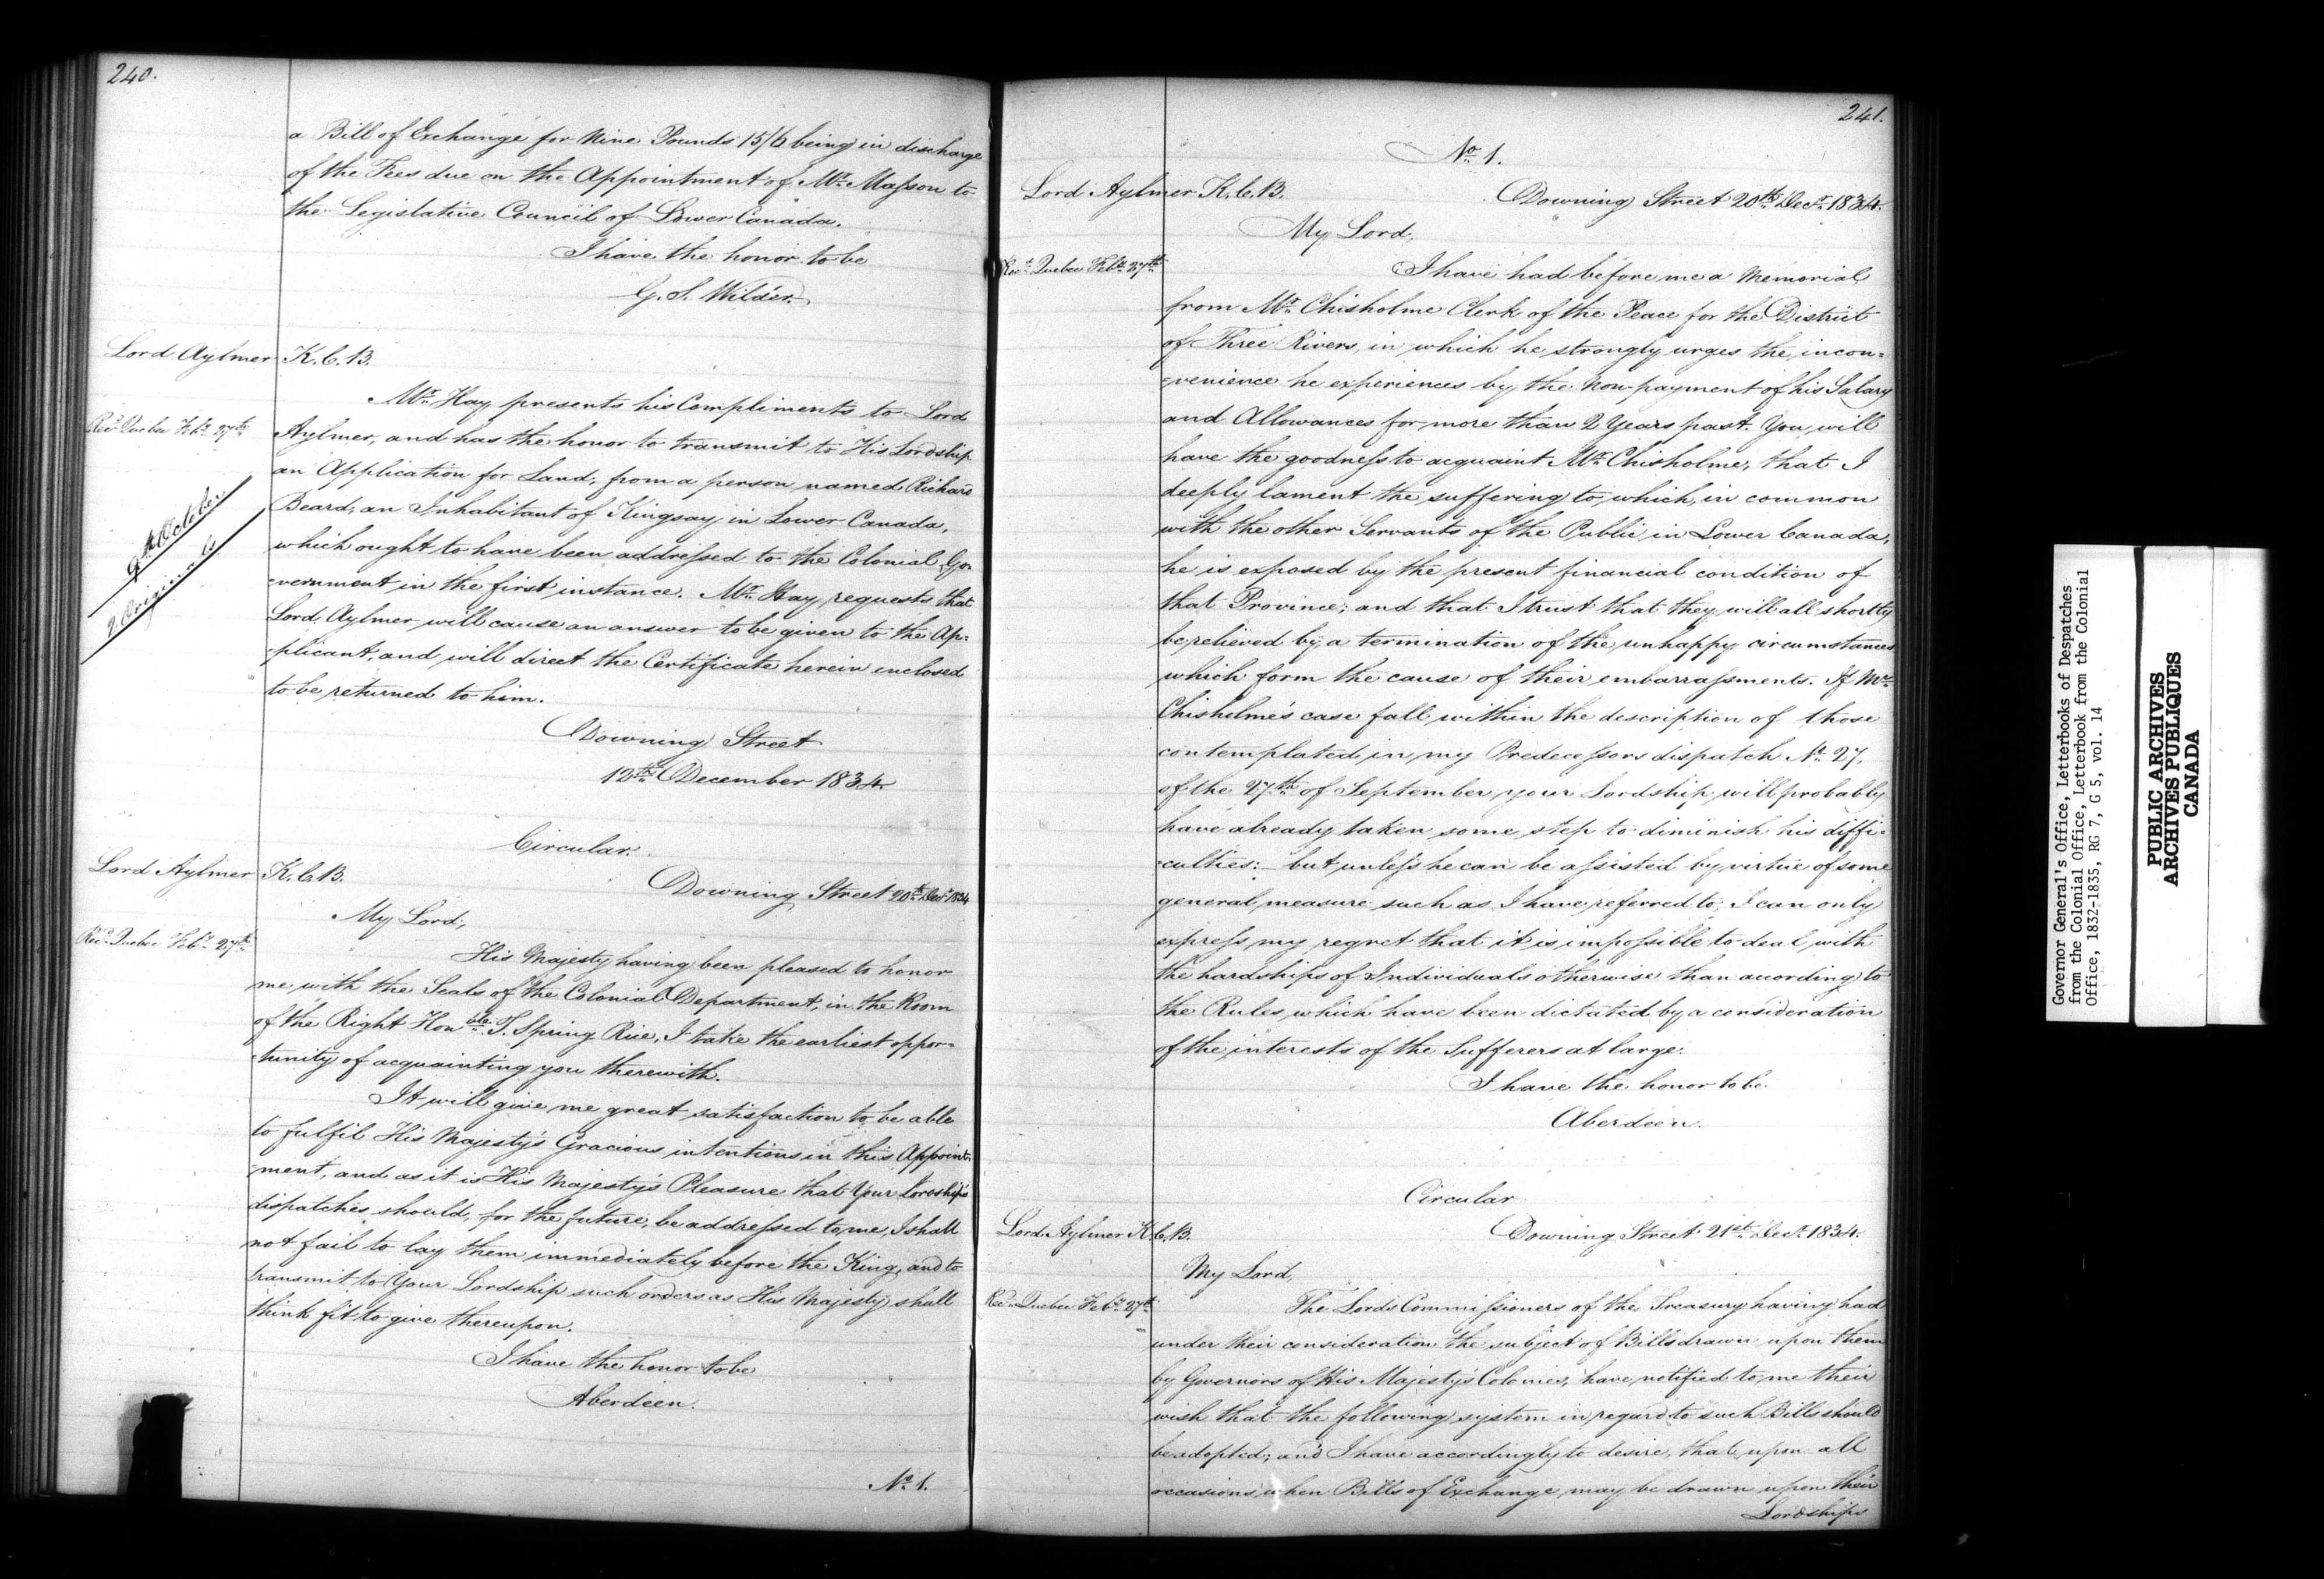 240.
a Bill of Exchange for Nine Pounds 15/6 being in discharge
of the Fees due on the Appointment of Mr. Masson to
the Legislative Council of Lower Canada.
I have the honor to be
G. S. Wilder.
Lord Aylmer K.C.B.
Mr. Hay presents his Compliments to Lord
Recd. Quebec Feby. 27th
Aylmer, and has the honor to transmit to His Lordship
an Application for Land, from a person named Richard
Beard, an Inhabitant of Kingsay in Lower Canada,
9th October
2 Originals
which ought to have been addressed to the Colonial Go-
-vernment in the first instance. Mr. Hay requests that
Lord Aylmer will cause an answer to be given to the Ap-
-plicant, and will direct the Certificate herein enclosed
to be returned to him.
Downing Street
12th December 1834
Circular.
Lord Aylmer K.C.B.
Downing Street 20th Decr. 1834
My Lord,
Recd. Quebec Feby. 27th
His Majesty having been pleased to honor
me with the Seals of the Colonial Department, in the Room
of the Right Honble. T. Spring Rice, I take the earliest oppor-
-tunity of acquainting you therewith.
It will give me great satisfaction to be able
to fulfil His Majesty's Gracious intentions in this Appoint-
-ment, and as it is His Majesty's Pleasure that Your Lordship's
dispatches should, for the future, be addressed to me, I shall
not fail to lay them immediately before the King, and to
transmit to Your Lordship such orders as His Majesty shall
think fit to give thereupon.
I have the honor to be
Aberdeen.
No. 1.
241.
No. 1.
Lord Aylmer K.C.B.
Downing Street 20th Decr. 1834.
My Lord,
Recd. Quebec Feby. 27th
I have had before me a Memorial
from Mr. Chisholme Clerk of the Peace for the District
of Three Rivers, in which he strongly urges the incon-
-venience he experiences by the Non-payment of his Salary
and Allowances for more than 2 Years past. You will
have the goodness to acquaint Mr. Chisholme, that I
deeply lament the suffering to which, in common
with the other Servants of the Public in Lower Canada,
he is exposed by the present financial condition of
that Province; and that I trust that they will all shortly
be relieved by a termination of the unhappy circumstances
which form the cause of their embarrassments. If Mr.
Chisholme's case fall within the description of those
contemplated in my Predecessors dispatch No. 27,
of the 27th of September your Lordship will probably
have already taken some step to diminish his diffi-
-culties: but unless he can be assisted by virtue of some
general measure such as I have referred to, I can only
express my regret that it is impossible to deal with
the hardships of Individuals otherwise than according to
the Rules which have been dictated by a consideration
of the interests of the Sufferers at large.
I have the honor to be
Aberdeen.
Circular
Lord Aylmer K.C.B.
Downing Street 21st Decr. 1834.
My Lord,
Recd. Quebec Feby. 27th
The Lords Commissioners of the Treasury having had
under their consideration the subject of Bills drawn upon them
by Governors of His Majesty's Colonies, have notified to me their
wish that the following system in regard to such Bills should
be adopted; and I have accordingly to desire, that upon all
occasions when Bills of Exchange may be drawn upon their
Lordships
Governor General's Office, Letterbooks of Despatches
from the Colonial Office, Letterbook from the Colonial
Office, 1832-1835, RG 7, G 5, vol. 14
PUBLIC ARCHIVES
ARCHIVES PUBLIQUES
CANADA